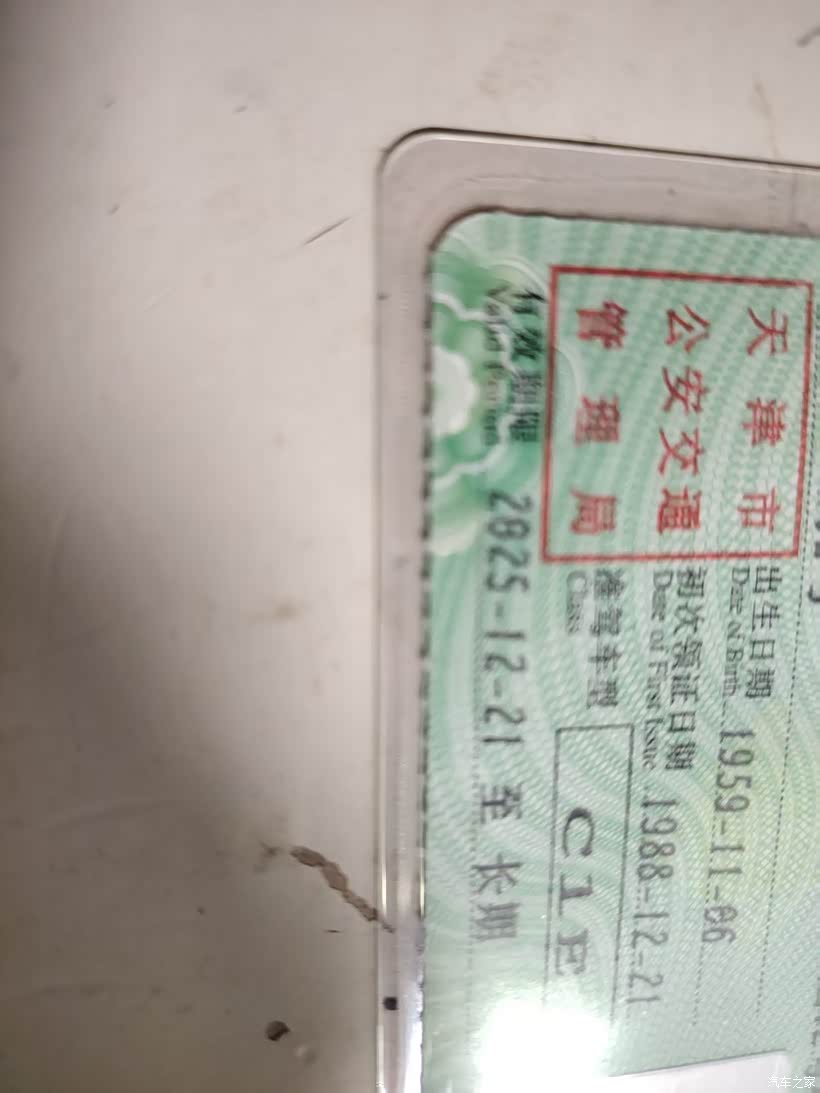 出生日期 1959-11-06
Date of Birth
初次领证日期 1988-12-21
Date of First Issue
天津市
公安交通
管理局
准驾车型 C1E
Class
有效期限 2025-12-21 至 长期
Valid Period
汽车之家